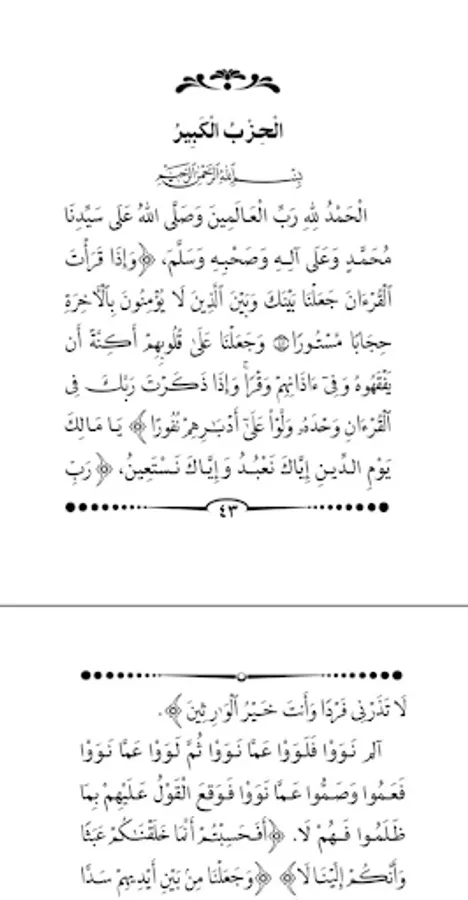 الْحِزْبُ الْكَبِيرُ
بِسْمِ اللهِ الرَّحْمٰنِ الرَّحِيمِ
الْحَمْدُ لِلهِ رَبِّ الْعَالَمِينَ وَصَلَّى اللهُ عَلَى سَيِّدِنَا
مُحَمَّدٍ وَعَلَى آلِهِ وَصَحْبِهِ وَسَلَّمَ، ﴿وَإِذَا قَرَأْتَ
الْقُرْءَانَ جَعَلْنَا بَيْنَكَ وَبَيْنَ الَّذِينَ لَا يُؤْمِنُونَ بِالْآخِرَةِ
حِجَابًا مَّسْتُورًا ۝ وَجَعَلْنَا عَلَىٰ قُلُوبِهِمْ أَكِنَّةً أَن
يَفْقَهُوهُ وَفِي ءَاذَانِهِمْ وَقْرًا ۚ وَإِذَا ذَكَرْتَ رَبَّكَ فِي
الْقُرْءَانِ وَحْدَهُ وَلَّوْا عَلَىٰ أَدْبَٰرِهِمْ نُفُورًا﴾ يَا مَالِكَ
يَوْمِ الدِّينِ إِيَّاكَ نَعْبُدُ وَإِيَّاكَ نَسْتَعِينُ، ﴿رَبِّ
٤٣
لَا تَذَرْنِي فَرْدًا وَأَنتَ خَيْرُ الْوَارِثِينَ﴾.
آلم نَوَوْا فَلَوَوْا عَمَّا نَوَوْا ثُمَّ لَوَوْا عَمَّا نَوَوْا
فَعَمُوا وَصَمُّوا عَمَّا نَوَوْا فَوَقَعَ الْقَوْلُ عَلَيْهِمْ بِمَا
ظَلَمُوا فَهُمْ لَا. ﴿أَفَحَسِبْتُمْ أَنَّمَا خَلَقْنَاكُمْ عَبَثًا
وَأَنَّكُمْ إِلَيْنَا لَا﴾ ﴿وَجَعَلْنَا مِنْ بَيْنِ أَيْدِيهِمْ سَدًّا